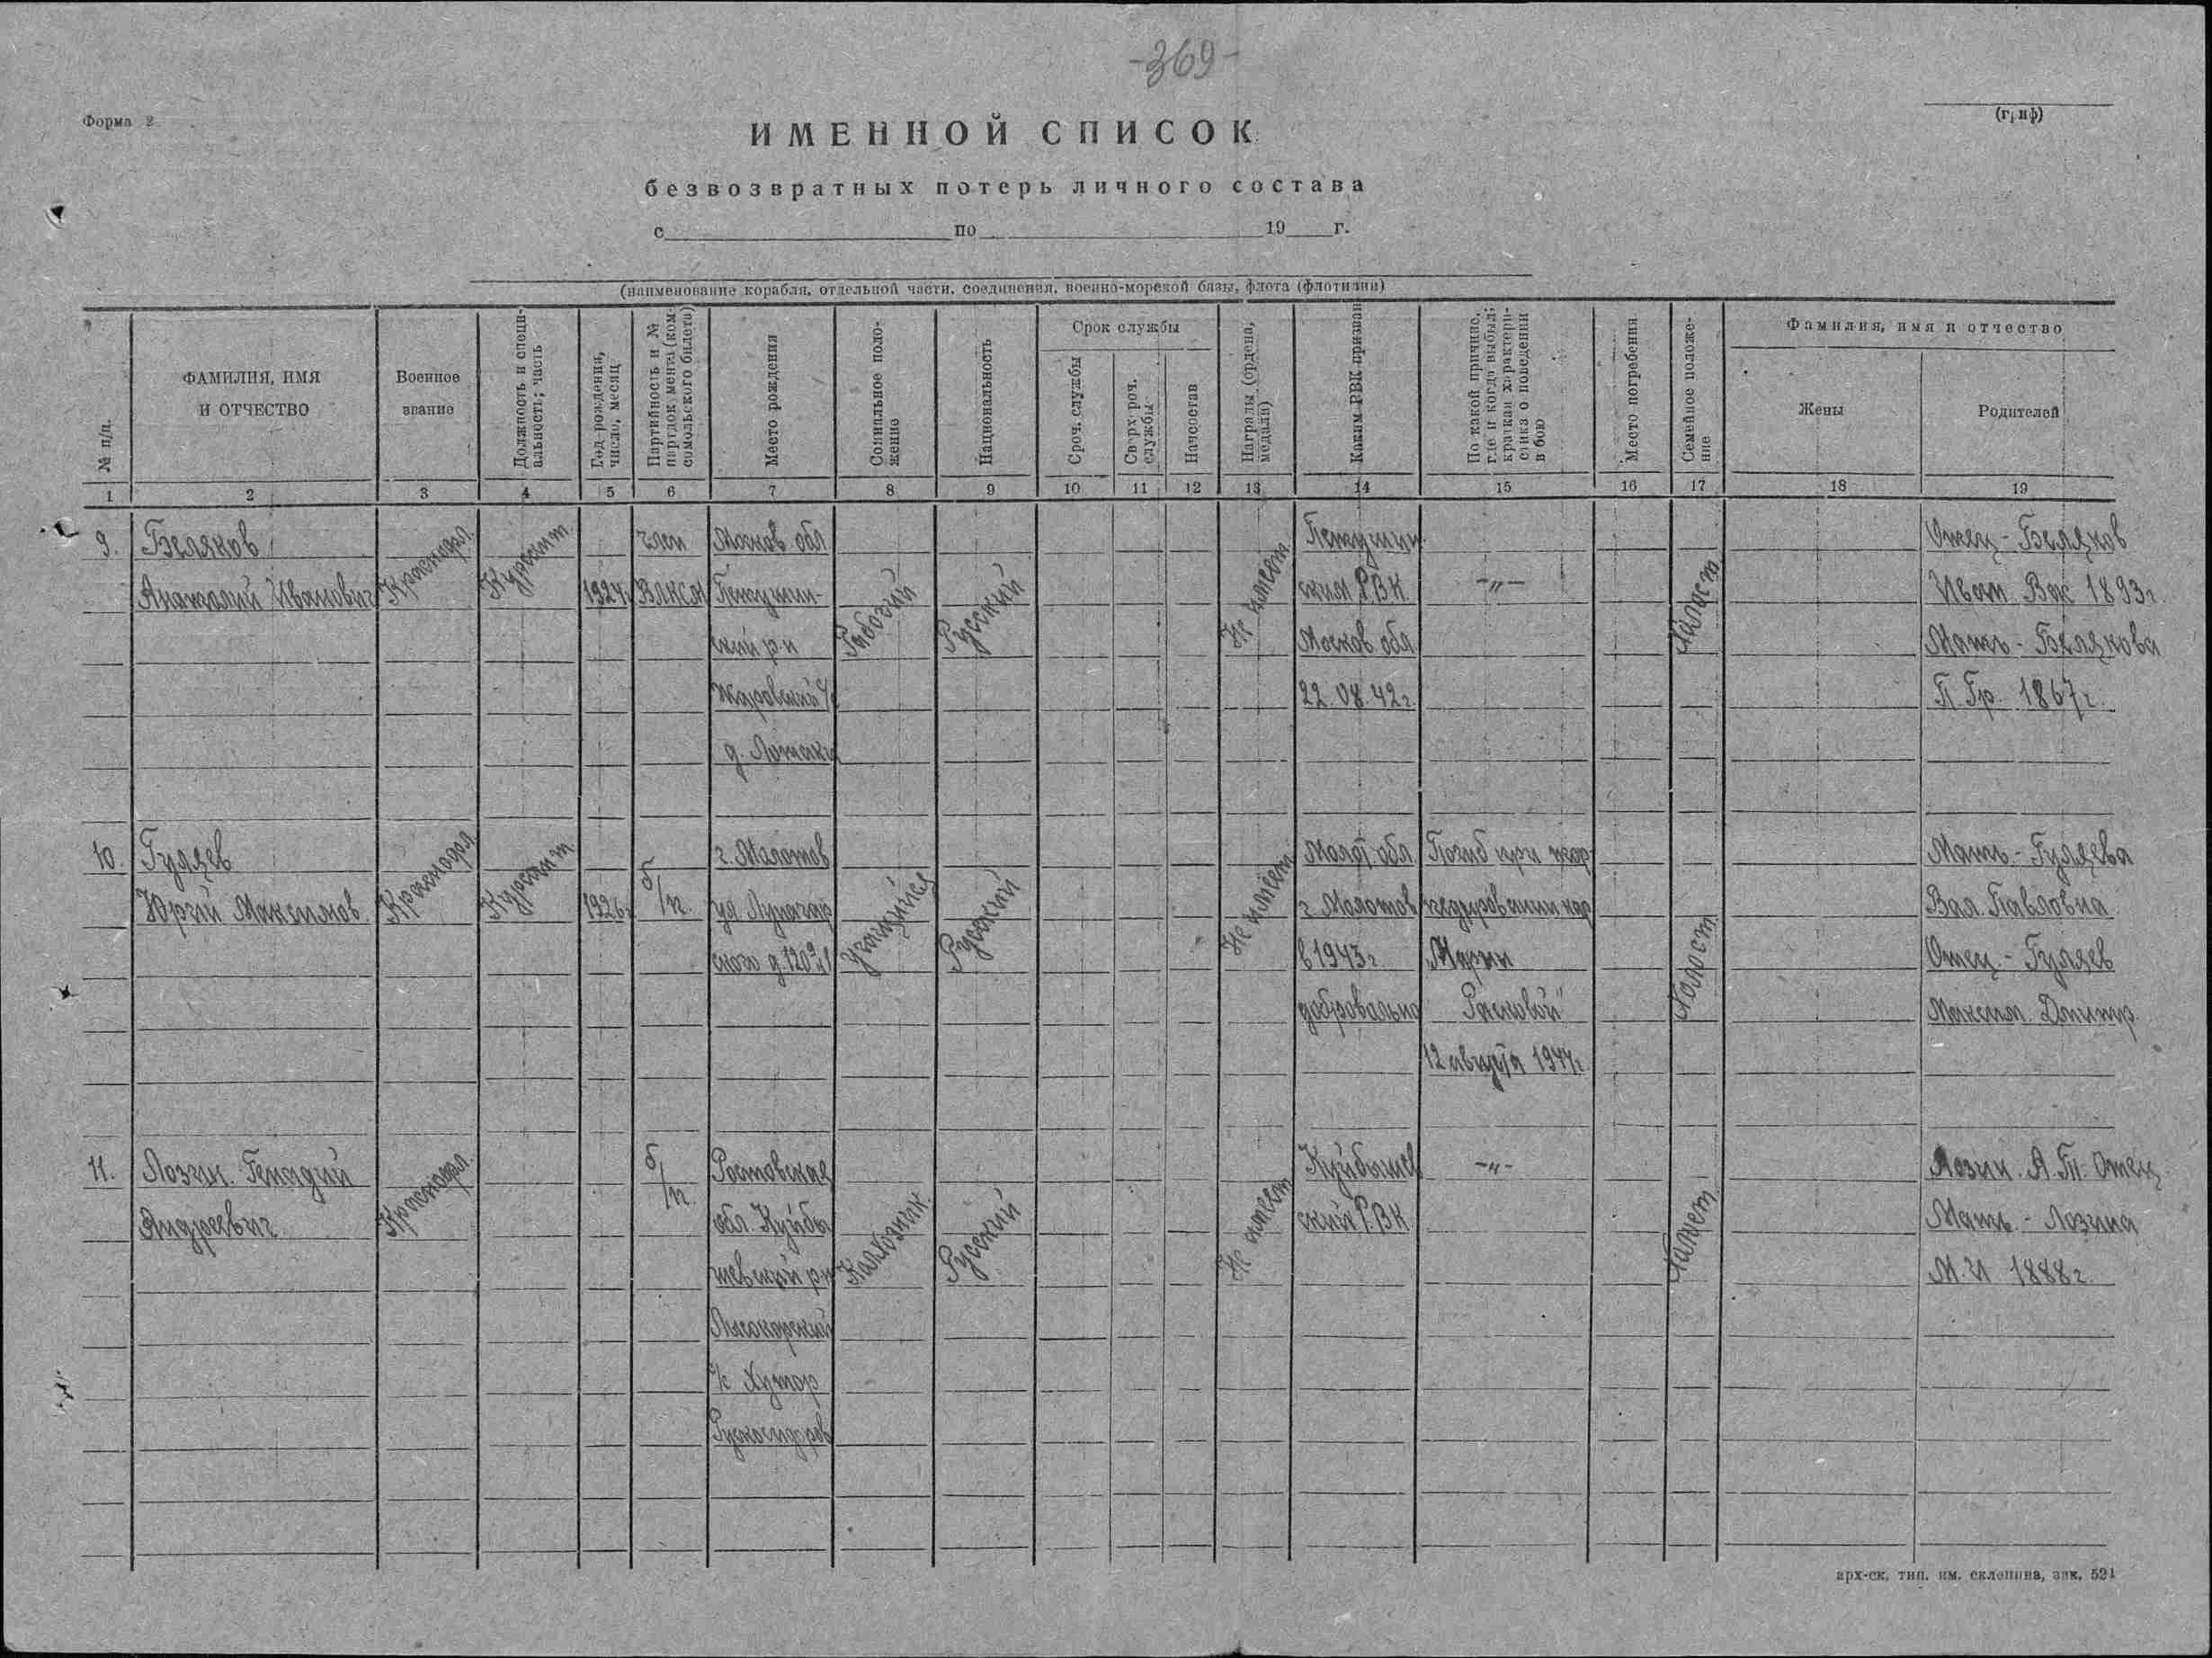 -369-
Форма 2
(гриф)
ИМЕННОЙ СПИСОК
безвозвратных потерь личного состава
с по 19 г.
(наименование корабля, отдельной части, соединения, военно-морской базы, флота (флотилии)
№ п/п.
ФАМИЛИЯ, ИМЯ
И ОТЧЕСТВО
Военное
звание
Должность и специ-
альность; часть
Год рождения,
число, месяц
Партийность и №
партдокумента (ком-
сомольского билета)
Место рождения
Социальное поло-
жение
Национальность
Срок службы
Сроч. службы
Сверх-сроч.
службы
Начсостав
Награды (ордена,
медали)
Каким РВК призван
По какой причине,
где и когда выбыл;
краткая характери-
стика о поведении
в бою
Место погребения
Семейное положе-
ние
Фамилия, имя и отчество
Жены
Родителей
1 2 3 4 5 6 7 8 9 10 11 12 13 14 15 16 17 18 19
9.
Беляков
Анатолий Иванович
Краснофл.
Курсант
1924г
член
ВЛКСМ
Москов. обл
Петушин-
ский р-н
Жаровский с/с
д. Лотаки
Рабочий
Русский
Не имеет
Петушин
ским РВК
Москов. обл
22.08.42г.
-"-
Холост
Отец - Беляков
Иван Вас 1893г.
Мать - Белякова
П. Гр. 1867г.
10.
Гуляев
Юрий Максимов.
Краснофл
Курсант
1926г
б/п.
г. Молотов
ул. Луначар
ского д. 120
Учащийся
Русский
Не имеет
Молот. обл.
г. Молотов
в 1943г
добровольно
Погиб при тор-
педировании пар
"Марии
Расковой"
12 августа 1944г.
Холост
Мать - Гуляева
Вал. Павловна
Отец - Гуляев
Максим. Дмитр.
11.
Лозин. Генадий
Андреевич
Краснофл.
б/п.
Ростовская
обл. Куйбы
шевский р-н
Лысогорский
с/с Хутор
Колхозник
Русский
Не имеет
Куйбышев
ский РВК
-"-
Холост
Лозин. А.П. Отец
Мать - Лозина
М.И 1888г.
арх-ск. тип. им. склепина, зак. 521